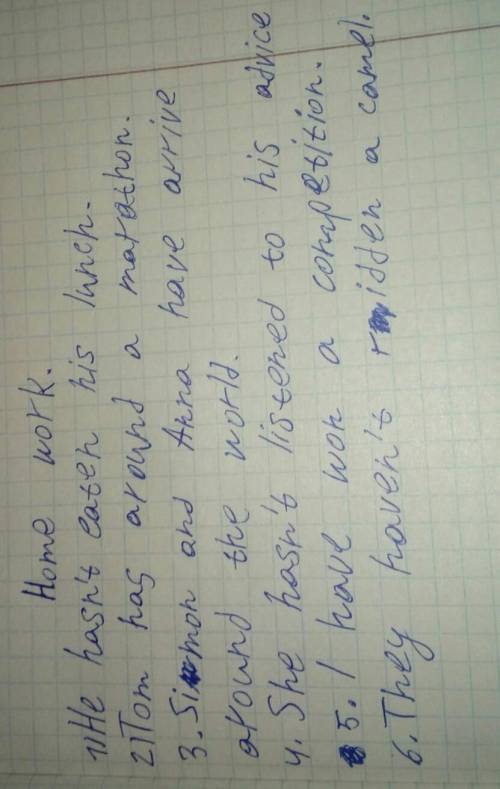 Home work.
1) He hasn't eaten his lunch.
2) Tom has around a marathon.
3. Simon and Anna have arrive
around the world.
4. She hasn't listened to his advice
5. I have won a competition.
6. They haven't ridden a camel.